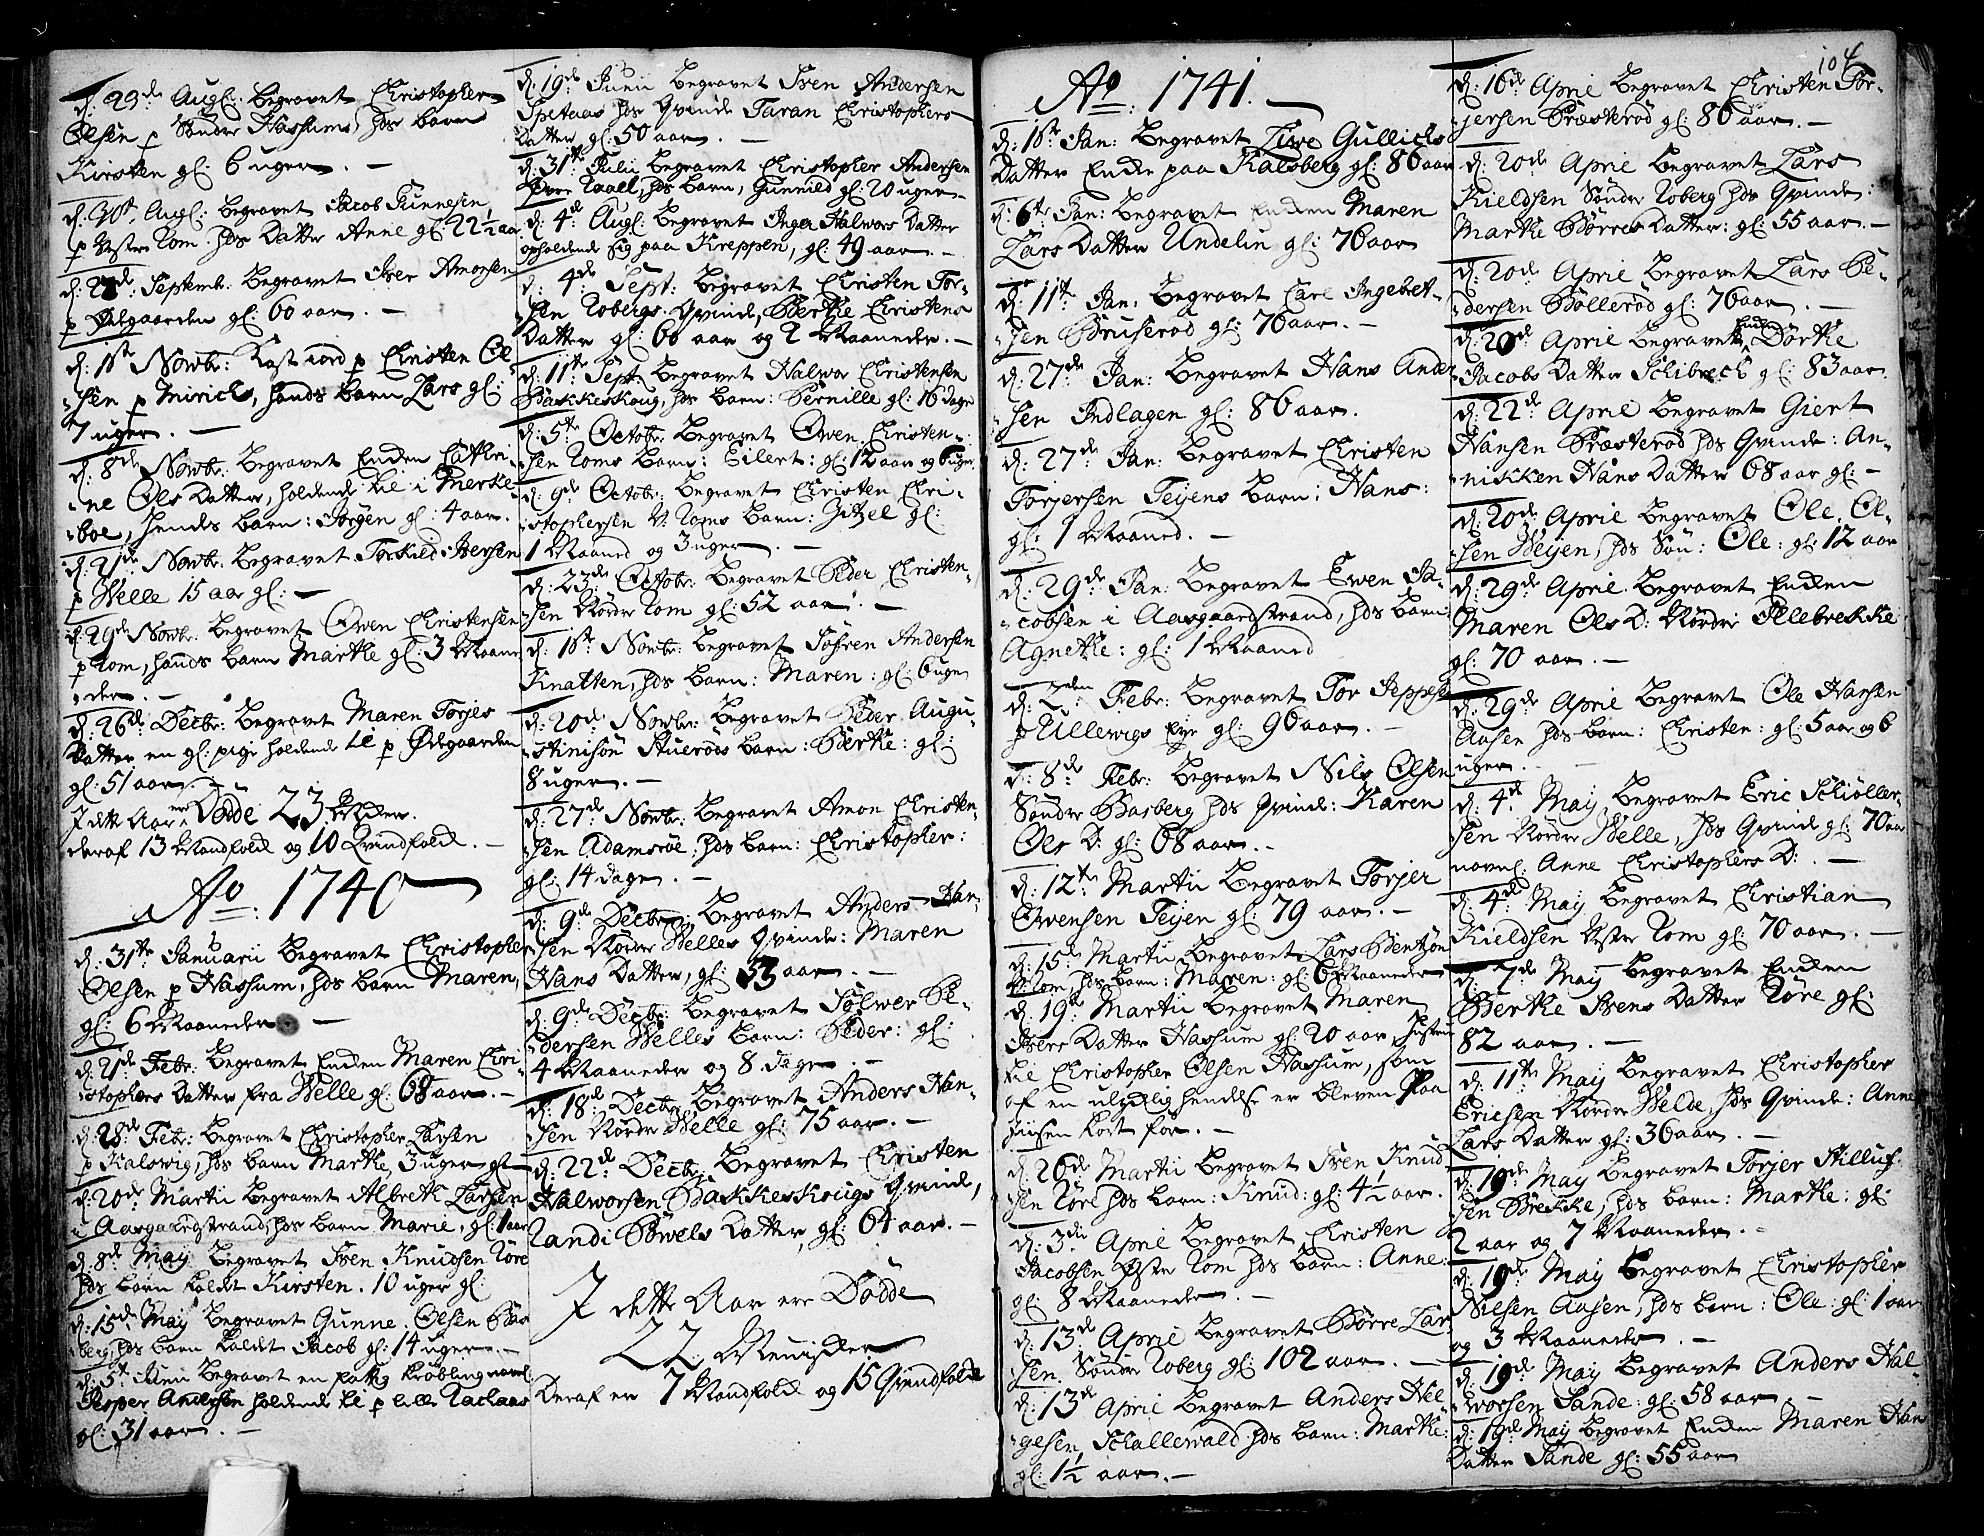 d: 23de Augl: begravet Christopher
Olsen p Søndre Hassums, hds barn
Kirsten gl: 6 uger. —
d: 30t Augl: begravet Jacob Gunnesen
p Vestre Rom hds Datter Anne gl: 22½ aar
d: 27de Septemb: begravet Iver Amonsen
p Ødegaarden gl: 60 aar. —
d: 1ste Novbr: Kast iord p Christen Ol-
sen p Mirichs, hands barn Lars gl:
7 uger. —
d: 8de Novbr: begravet Enken Cathri-
ne Ols Datter, holdende til i Merke-
boe, hendes barn: Jörgen gl: 4 aar.
d: 21de Novbr: begravet Torkild Iversen
p Welle 15 aar gl: —
d: 29de Novbr: begravet Owen Christensen
p Rom, hands barn Marthe gl: 3 Maane-
der. —
d: 26de Decbr: begravet Maren Torjes
Datter en gl: pige holdende til p Ødegaarden
gl: 51 aar. —
I dette Aar ere Døde 23 Men:
deraf 13 Mandfolck og 10 Qvindfolck. —
Ao: 1740
d: 31te Januarii begravet Christopher
Olsen p Hassum, hds barn Maren,
gl: 6 Maaneder —
d: 21de Febr: begravet Enken Maren Chri-
stophers Datter fra Welle gl: 68 aar. —
d: 28de Febr: begravet Christopher Larsen
p Kalswig, hds barn Marthe, 3 uger gl —
d: 20de Martii begravet Albreth Larsen
i Aasgaardstrand, hds barn Marie, gl: 1 aar
d. 8de May begravet Sven Knudsen Røre
hds barn kaldt Kirsten. 10 uger gl:
d: 15de May begravet Gunne Olsen Bas-
berg, hds barn kaldet Jacob gl: 14 uger. —
d: 5te Junii begravet en fattig krøbling navnl.
Jesper Andersen holdende til p lille Rachaas
gl: 31 aar. —
d: 19de Junii begravet Sven Andersen
Spetaas hds Qvinde Taran Christophers
Datter gl: 50 aar. —
d: 31te Julii begravet Christopher Andersen
Øvre Raall, hds barn, Gunnild gl: 20 uger —
d: 4de Augl: begravet Inger Halwors Datter
opholdende sig paa Kreppen, gl: 49 aar. —
d: 4de Sept: begravet Christen Tor-
sen Robergs Qvinde, Berthe Christens
Datter gl: 66 aar og 2 Maaneder. —
d: 11te Sept: begravet Halwor Christensen
Backeskoug, hds barn: Pernille gl: 16 dage
d: 5te Octobr: begravet Owen Christen-
sen Roms barn: Eilert: gl: 12 aar og 6 uger.
d: 9de Octobr: begravet Christen Chri-
stophersen V: Roms barn: Zitzel gl:
1 Maaned og 3 uger. —
d: 23de Octobr: begravet Peder Christen-
sen Nordre Rom gl: 52 aar. —
d: 10te Novbr: begravet Søfren Andersen
Knatten, hds barn: Maren: gl: 6 uger
d: 20de Novbr: begravet Peder Augu-
stinisøn Stuerøds barn: Berthe: gl:
8 uger. —
d: 27de Novbr: begravet Amon Christen-
sen Adamsröe hds barn: Christopher:
gl: 14 dage. —
d: 9de Decbr: begravet Anders Han-
sen Nordre Welles Qvinde: Maren
Hans Datter, gl: 53 aar. —
d: 9de Decbr: begravet Sølwer Pe-
dersen Welles barn: Peder: gl:
4 Maaneder og 8 Dage. —
d: 18de Decbr: begravet Anders Han-
sen Nordre Welle gl: 75 aar. —
d: 22de Decbr: begravet Christen
Halworsen Backeskougs Qvinde,
Randi Pøwels Datter, gl: 64 aar. —
I dette Aar ere Dödde
22 Menisker
Deraf er 7 Mandfolck og 15 Qvindfolck
Ao: 1741. —
d: 1ste Jan: begravet Live Gullichs
Datter Enke paa Kalsberg gl: 86 aar
d: 6te Jan: begravet Enken Maren
Lars Datter Undelin gl: 76 aar
d: 11te Jan: begravet Carl Ingebret-
sen Bruserød gl: 76 aar. —
d: 27de Jan: begravet Hans Ander-
sen Indlagen gl: 86 aar.
d: 27de Jan: begravet Christen
Torjersen Teyens barn: Hans:
gl: 1 Maaned. —
d: 29de Jan: begravet Ewen Ja-
cobsen i Aasgaardstrand, hds barn
Agnethe: gl: 1 Maaned
d: 2den Febr: begravet Tor Jeppesen
p Ullewigs Eye gl: 90 aar. —
d: 8de Febr: begravet Nils Olsen
Søndre Basberg hds Qvinde: Karen
Ols D: gl: 68 aar. —
d: 12te Martii begravet Torjer
Owensen Teyen gl: 79 aar. —
d: 15de Martii begravet Lars Bentzøn
V: Rom, hds barn: Maren: gl: 6 Maaneder
d: 19de Martii begravet Maren
Ivers Datter Hassum gl: 20 aar Hustru
til Christopher Olsen Hassum, som
af en ulychelig hendelse er bleven paa
Jiisen kort før. —
d: 26de Martii begravet Sven Knud-
sen Røre hds barn: Knud: gl: 4½ aar.
d: 3die April begravet Christen
Jacobsen Østre Rom hds barn: Anne:
gl: 8 Maaneder. —
d: 13de April begravet Børre Lar-
sen Søndre Roberg gl: 102 aar. —
d: 13de April begravet Anders Hel-
gesen Schallewald hds barn: Marthe:
gl: 1½ aar. —
104
d: 16de April begravet Christen Tor-
jersen Præsterød gl: 86 aar. —
d: 20de April begravet Lars
Kieldsen Søndre Roberg hds Qvinde:
Marthe Børres Datter: gl: 55 aar. —
d: 20de April begravet Lars Pe-
dersen Bøllerød gl: 76 aar. —
d: 20de April begravet Enken Dorthe
Jacobs Datter Schibrech gl: 83 aar.
d: 22de April begravet Giert
Hansen Præsterød hds Qvinde: An-
nikken Hans Datter 68 aar gl: —
d: 20de April begravet Ole Ol-
sen Weyen, hds Søn: Ole: gl: 12 aar
d: 29de April begravet Enken
Maren Ols D: Nordre Illebrekke
gl: 70 aar. —
d: 29de April begravet Ole Hansen
Aasen hds barn: Christen: gl: 5 aar og 6
uger. —
d: 4de May begravet Eric Schiøller-
sen Nordre Welle, hds Qvinde gl: 70 aar
navnl. Anne Christophers D: —
d: 4de May begravet Christian
Kieldsen Østre Rom gl: 70 aar. —
d: 7de May begravet Enken
Berthe Svens Datter Røre gl:
82 aar. —
d: 11te May begravet Christopher
Ericsen Nordre Welde, hds Qvinde: Anne
Lars Datter gl: 36 aar. —
d: 19de May begravet Torjer Hilluf-
sen Brekke, hds barn: Marthe: gl:
2 aar og 7 Maaneder. —
d: 19de May begravet Christopher
Nielsen Aasen, hds barn: Ole: gl: 1 aar
og 3 Maaneder. —
d: 19de May begravet Anders Hal-
worsen Sande: gl: 58 aar —
d: 19de May begravet Enken Maren Han
Datter Sande gl: 55 aar